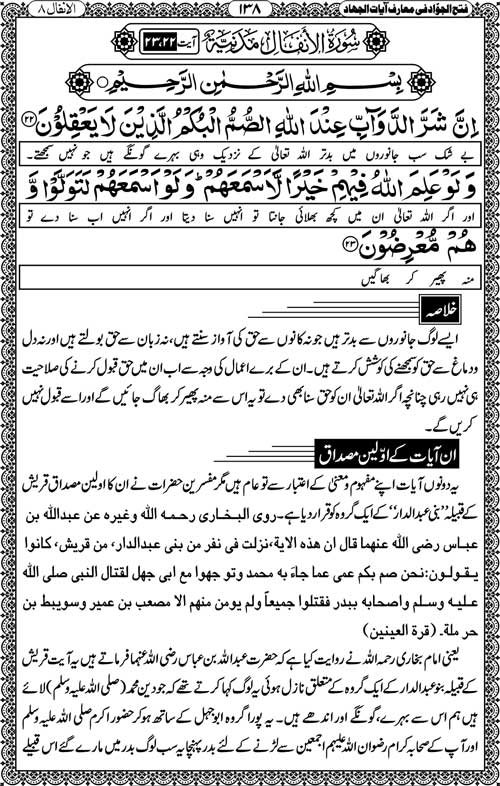 فتح الجوّاد فی معارف آیات الجهاد ۱۳۸ الانفال ۸
سُوْرَۃُ الْاَنْفَالِ مَدَنِیَّۃٌ آیت ۲۳،۲۲
بِسْمِ اللهِ الرَّحْمٰنِ الرَّحِیْمِ
اِنَّ شَرَّ الدَّوَآبِّ عِنْدَ اللهِ الصُّمُّ الْبُكْمُ الَّذِیْنَ لَا یَعْقِلُوْنَ ۲۲
بے شک سب جانوروں میں بدتر اللہ تعالیٰ کے نزدیک وہی بہرے گونگے ہیں جو نہیں سمجھتے۔
وَلَوْ عَلِمَ اللهُ فِیْهِمْ خَیْرًا لَّاَسْمَعَهُمْ ؕ وَلَوْ اَسْمَعَهُمْ لَتَوَلَّوْا وَّ
اور اگر اللہ تعالیٰ ان میں کچھ بھلائی جانتا تو انہیں سنا دیتا اور اگر انہیں اب سنا دے تو
هُمْ مُّعْرِضُوْنَ ۲۳
منہ پھیر کر بھاگیں
خلاصہ
ایسے لوگ جانوروں سے بدتر ہیں جو نہ کانوں سے حق کی آواز سنتے ہیں، نہ زبان سے حق بولتے ہیں اور نہ دل
ودماغ سے حق کو سمجھنے کی کوشش کرتے ہیں۔ ان کے برے اعمال کی وجہ سے اب ان میں حق قبول کرنے کی صلاحیت
ہی نہیں رہی چنانچہ اگر اللہ تعالیٰ ان کو حق سنا بھی دے تو یہ اس سے منہ پھیر کر بھاگ جائیں گے اور اسے قبول نہیں
کریں گے۔
ان آیات کے اوّلین مصداق
یہ دونوں آیات اپنے مفہوم و معنیٰ کے اعتبار سے تو عام ہیں مگر مفسرین حضرات نے ان کا اولین مصداق قریش
کے قبیلہ ”بنی عبدالدار“ کے ایک گروہ کو قرار دیا ہے۔ روی البخاری رحمہ اللہ وغیرہ عن عبداللہ بن
عباس رضی اللہ عنهما قال ان هذه الایة، نزلت فی نفر من بنی عبدالدار، من قریش، کانوا
یقولون: نحن صم بکم عمی عما جاء به محمد وتو جهوا مع ابی جهل لقتال النبی صلی اللہ
علیہ وسلم واصحابه ببدر فقتلوا جمیعاً ولم یومن منهم الا مصعب بن عمیر وسویبط بن
حر ملة۔ (قرة العینین)
یعنی امام بخاری رحمہ اللہ نے روایت کیا ہے کہ حضرت عبداللہ بن عباس رضی اللہ عنہما فرماتے ہیں یہ آیت قریش
کے قبیلہ بنو عبدالدار کے ایک گروہ کے متعلق نازل ہوئی یہ لوگ کہا کرتے تھے کہ جو دین محمد (صلی اللہ علیہ وسلم) لائے
ہیں ہم اس سے بہرے، گونگے اور اندھے ہیں۔ یہ پورا گروہ ابو جہل کے ساتھ ہو کر حضور اکرم صلی اللہ علیہ وسلم
اور آپ کے صحابہ کرام رضوان اللہ علیہم اجمعین سے لڑنے کے لئے بدر پہنچا یہ سب لوگ بدر میں مارے گئے اس قبیلے